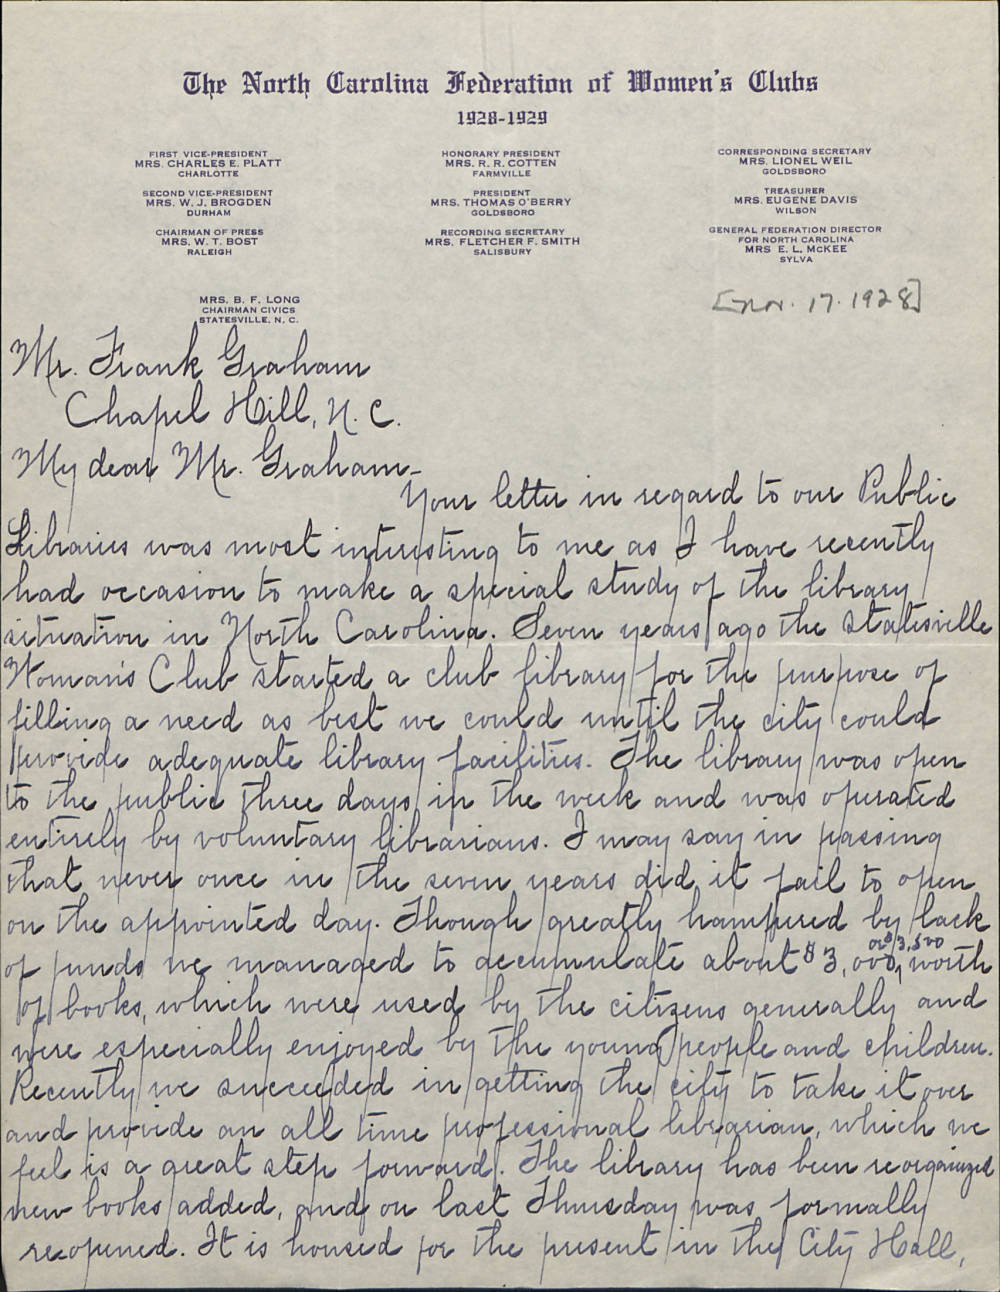 The North Carolina Federation of Women's Clubs
1928-1929
FIRST VICE-PRESIDENT
MRS. CHARLES E. PLATT
CHARLOTTE
SECOND VICE-PRESIDENT
MRS. W. J. BROGDEN
DURHAM
CHAIRMAN OF PRESS
MRS. W. T. BOST
RALEIGH
HONORARY PRESIDENT
MRS. R. R. COTTEN
FARMVILLE
PRESIDENT
MRS. THOMAS O'BERRY
GOLDSBORO
RECORDING SECRETARY
MRS. FLETCHER F. SMITH
SALISBURY
CORRESPONDING SECRETARY
MRS. LIONEL WEIL
GOLDSBORO
TREASURER
MRS. EUGENE DAVIS
WILSON
GENERAL FEDERATION DIRECTOR
FOR NORTH CAROLINA
MRS E. L. McKEE
SYLVA
MRS. B. F. LONG
CHAIRMAN CIVICS
STATESVILLE, N. C.
[Nov. 17. 1928]
Mr. Frank Graham
Chapel Hill, N. C.
My dear Mr. Graham-
Your letter in regard to our Public
Libraries was most interesting to me as I have recently
had occasion to make a special study of the library
situation in North Carolina. Seven years ago the Statesville
Woman's Club started a club library for the purpose of
filling a need as best we could until the city could
provide adequate library facilities. The library was open
to the public three days in the week and was operated
entirely by voluntary librarians. I may say in passing
that never once in the seven years did it fail to open
on the appointed day. Though greatly hampered by lack
of funds we managed to accumulate about $3,000, or $3,500 worth
of books, which were used by the citizens generally and
were especially enjoyed by the young people and children.
Recently we succeeded in getting the city to take it over
and provide an all time professional librarian, which we
feel is a great step forward. The library has been reorganized
new books added, and on last Thursday was formally
re-opened. It is housed for the present in the City Hall,